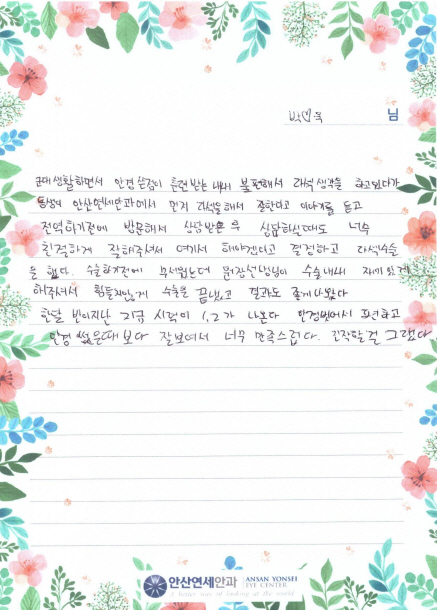 박♡욱 님
군대생활하면서 안경 쓴김이 훈련받는 내내 불편해서 라섹생각을 하고있다가
동생이 안산연세안과에서 먼저 라식을해서 잘한다고 이야기를 듣고
전역하기전에 방문해서 상담받은 후 상담하실때도 너무
친절하게 잘해주셔서 여기서 해야겠다고 결정하고 라섹수술
을 했다. 수술하기전에 무서웠는데 원장선생님이 수술내내 재미있게
해주셔서 힘들지않게 수술을 끝냈고 결과도 좋게나왔다
한달 반이지난 지금 시력이 1.2가 나온다 안경벗어서 편하고
안경 썼을때보다 잘보여서 너무 만족스럽다. 진작할걸 그랬다
안산연세안과 ANSAN YONSEI
EYE CENTER
A better way of looking at the world